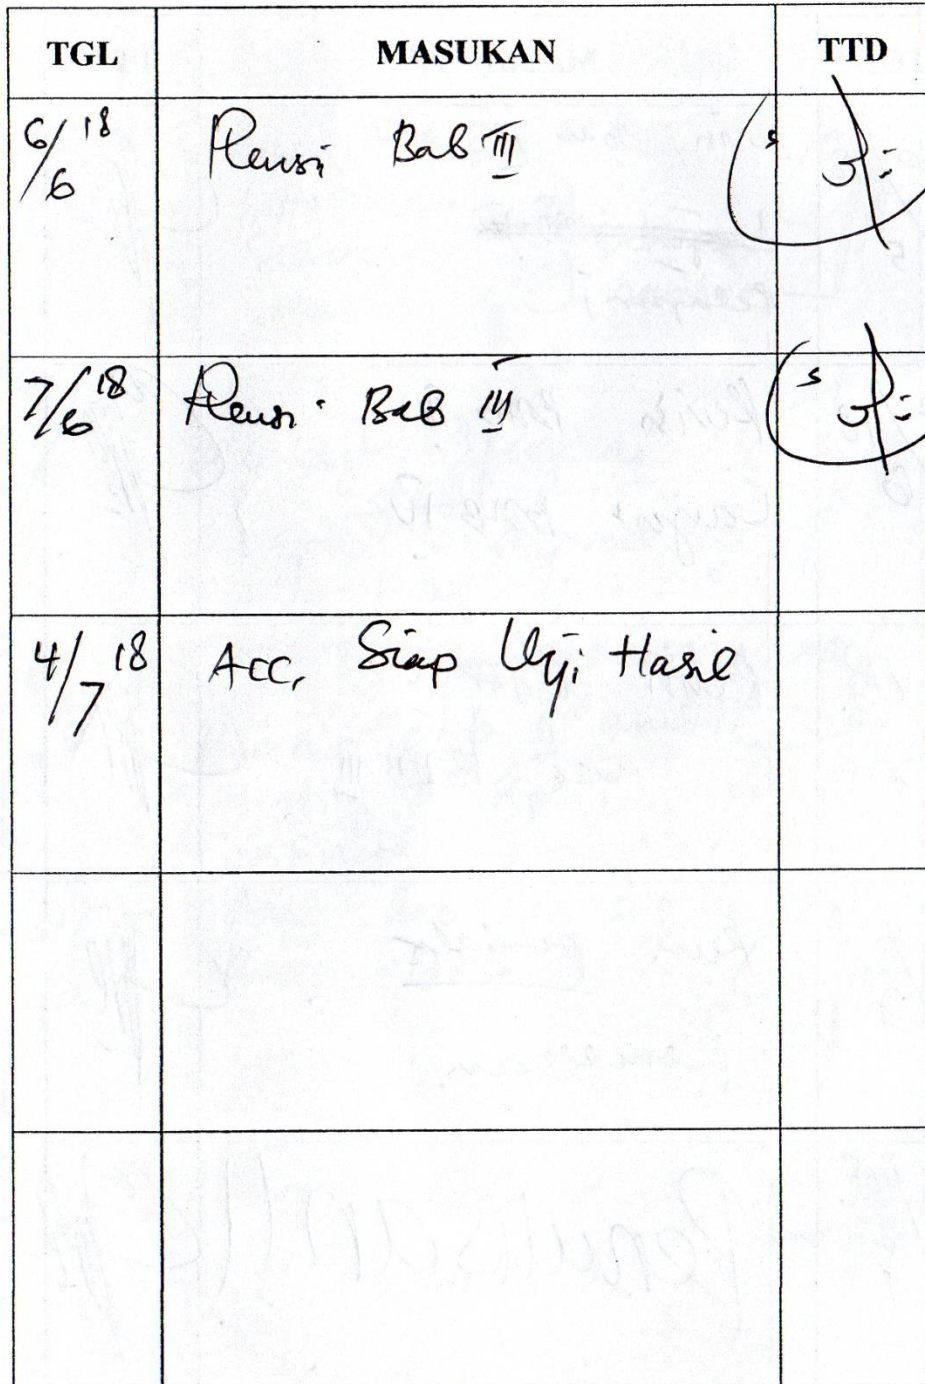 TGL MASUKAN TTD
6/6 18 Revisi Bab III
7/6 18 Revisi Bab
4/7 18 Acc, Siap Uji Hasil